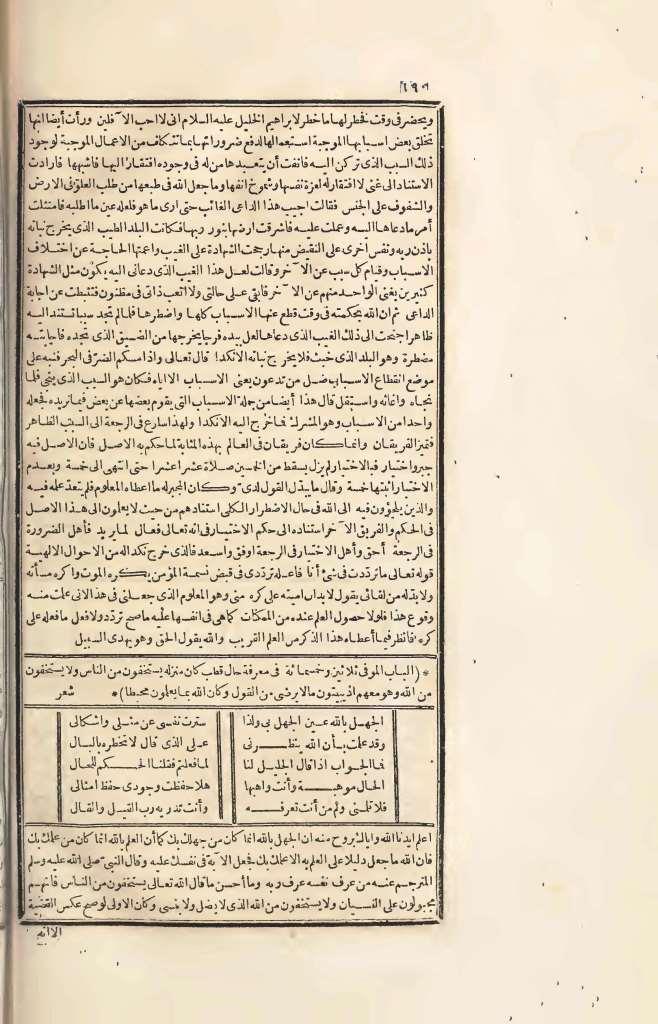 ١٩٠
ويحضر فى وقت فخطر لها ما خطر لابراهيم الخليل عليه السلام انى لا احب الآفلين ورأت أيضا انها
تخلق بعض اسبابها الموجبة استعمالها لدفع ضروراتها بما تتكاف من الاعمال الموجبة لوجود
ذلك السبب الذى تركن اليه فانفت أن يتعبدها من له فى وجوده افتقار اليها فاشبهها فارادت
الاستناد الى غنى لا افتقار له لعزة نفسها وشموخ انفها وما جعل الله فى طبعها من طلب العلو فى الارض
والشفوف على الجنس فقالت اجيب هذا الداعى الغائب حتى ارى ما هو فلعله عين ما اطلبه فامتثلت
أمر ما دعاها اليه وعملت عليه فاشرقت ارضها بنور ربها فكانت البلد الطيب الذى يخرج نباته
باذن ربه ونفس أخرى على النقيض منها رجحت الشهادة على الغيب واعمتها الحاجة عن اختلاف
الاسباب وقيام كل سبب عن الآخر وقالت لعل هذا الغيب الذى دعانى اليه يكون مثل الشهادة
كثيرين يغنى الواحد منهم عن الآخر فابقى على حالتى ولا اتعب ذاتى فى مظنون فتثبطت عن اجابة
الداعى ثم ان الله بحكمته فى وقت قطع عنها الاسباب كلها واضطرها فلما لم تجد سببا تستند اليه
ظاهرا جنحت الى ذلك الغيب الذى دعاها لعل بيده فرجا يخرجها من الضيق الذى تجده فاجابته
مضطرة وهو البلد الذى خبث فلا يخرج نباته الا نكدا قال تعالى واذا مسكم الضر فى البحر فنبه على
موضع انقطاع الاسباب ضل من تدعون يعنى الاسباب الا اياه فكان هو السبب الذى ينجى فلما
نجاه واغاثه واستقل قال هذا أيضا من جملة الاسباب التى يقوم بعضها عن بعض فيما نريده فجعله
واحدا من الاسباب وهو المشرك فما خرج اليه الا نكدا ولهذا سارع فى الرجعة الى السبب الظاهر
فتميز الفريقان وانما كان فريقان فى العالم بهذه المثابة لما حكم به الاصل فان الاصل فيه
جبر واختيار فبالاختيار لم يزل يسقط من الخمسين صلاة عشرا عشرا حتى انتهى الى خمسة وبعدم
الاختيار أثبتها خمسة وقال ما يبدل القول لدى وكان المجبر له ما اعطاه المعلوم فلم يتعد علمه فيه
والذين يلجؤون فيه الى الله فى حال الاضطرار الكلى استنادهم من حيث لا يعلمون الى هذا الاصل
فى الحكم والفريق الآخر استناده الى حكم الاختيار فى انه تعالى فعال لما يريد فأهل الضرورة
فى الرجعة أحق وأهل الاختيار فى الرجعة اوفق واسعد فالذى خرج نكدا له من الاحوال الالهية
قوله تعالى ما ترددت فى شئ أنا فاعله ترددى فى قبض نسمة المؤمن يكره الموت واكره مسأته
ولا بد له من لقائى يقول لا بد ان اميته على كره منى وهو المعلوم الذى جعلنى فى هذا لانى علمت منه
وقوع هذا فلولا حصول العلم عنده من الممكنات كما هى فى انفسها عليه ما صح تردد ولا فعل ما فعله على
كره فانظر فيما أعطاه هذا الذكر من العلم الغريب والله يقول الحق وهو يهدى السبيل
* (الباب الموفى ثلاثين وخمسمائة فى معرفة حال قطب كان منزله يستخفون من الناس ولا يستخفون
من الله وهو معهم اذ يبيتون ما لا يرضى من القول وكان الله بما يعملون محيطا) * شعر
الجهل بالله عين الجهل بى ولذا سترت نفسى عن مثلى واشكالى
وقد علمت بأن الله ينظرنى على الذى قال لا تخطره بالبال
فما الجواب اذا قال الجليل لنا لما فعلتم فقلنا الحكم للحال
الحال موهبة وأنت واهبها هلا حفظت وجودى حفظ امثالى
فلا تلنى ولم من أنت تعرفه وأنت تدريه رب القيل والقال
اعلم ايدنا الله واياك بروح منه ان الجهل بالله انما كان من جهلك بك كما أن العلم بالله انما كان من علمك بك
فان الله ما جعل دليلا على العلم به الا علمك بك فجعل الآية فى نفسك عليه وقال النبى صلى الله عليه وسلم
المترجم عنه من عرف نفسه عرف ربه وما أحسن ما قال الله تعالى يستخفون من الناس فانهم
مجبولون على النسيان ولا يستخفون من الله الذى لا يضل ولا ينسى وكان الاولى لو صح عكس القضية
الا انه